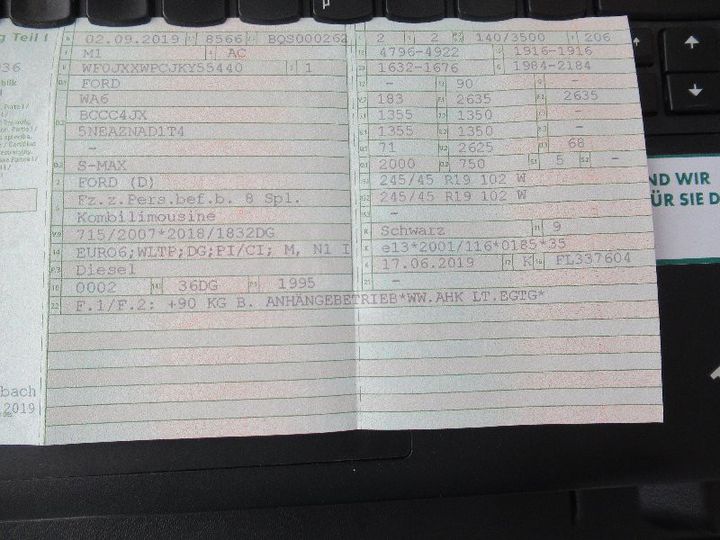 g Teil I
B 02.09.2019 8566 BQS000262 2 2 140/3500 206
M1 AC 4796-4922 1916-1916
WF0JXXWPCJKY55440 1 1632-1676 1984-2184
FORD - 90 -
WA6 183 2635 2635
BCCC4JX 1355 1350 -
5NEAZNAD1T4 1355 1350 -
- 71 2625 68
S-MAX 2000 750 5 -
FORD (D) 245/45 R19 102 W
Fz.z.Pers.bef.b. 8 Spl. 245/45 R19 102 W
Kombilimousine -
715/2007*2018/1832DG Schwarz 9
EURO6;WLTP;DG;PI/CI; M, N1 I e13*2001/116*0185*35
Diesel 17.06.2019 K FL337604
0002 36DG 1995 -
F.1/F.2: +90 KG B. ANHÄNGEBETRIEB*WW.AHK LT.EGTG*
bach
.2019
ND WIR
ÜR SIE D